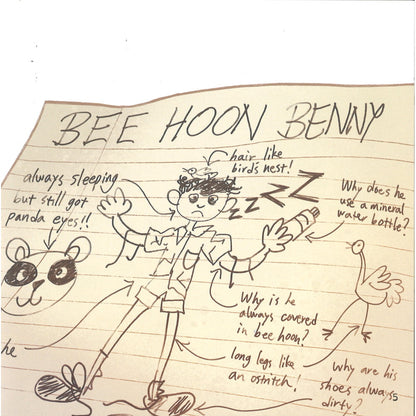 BEE HOON BENNY
hair like
birds nest!
always sleeping
but still got
panda eyes!!
ZZZZ
Why does he
use a mineral
water bottle?
Why is he
always covered
in bee hoon?
he
long legs like
an ostritch!
why are his
shoes always
dirty?